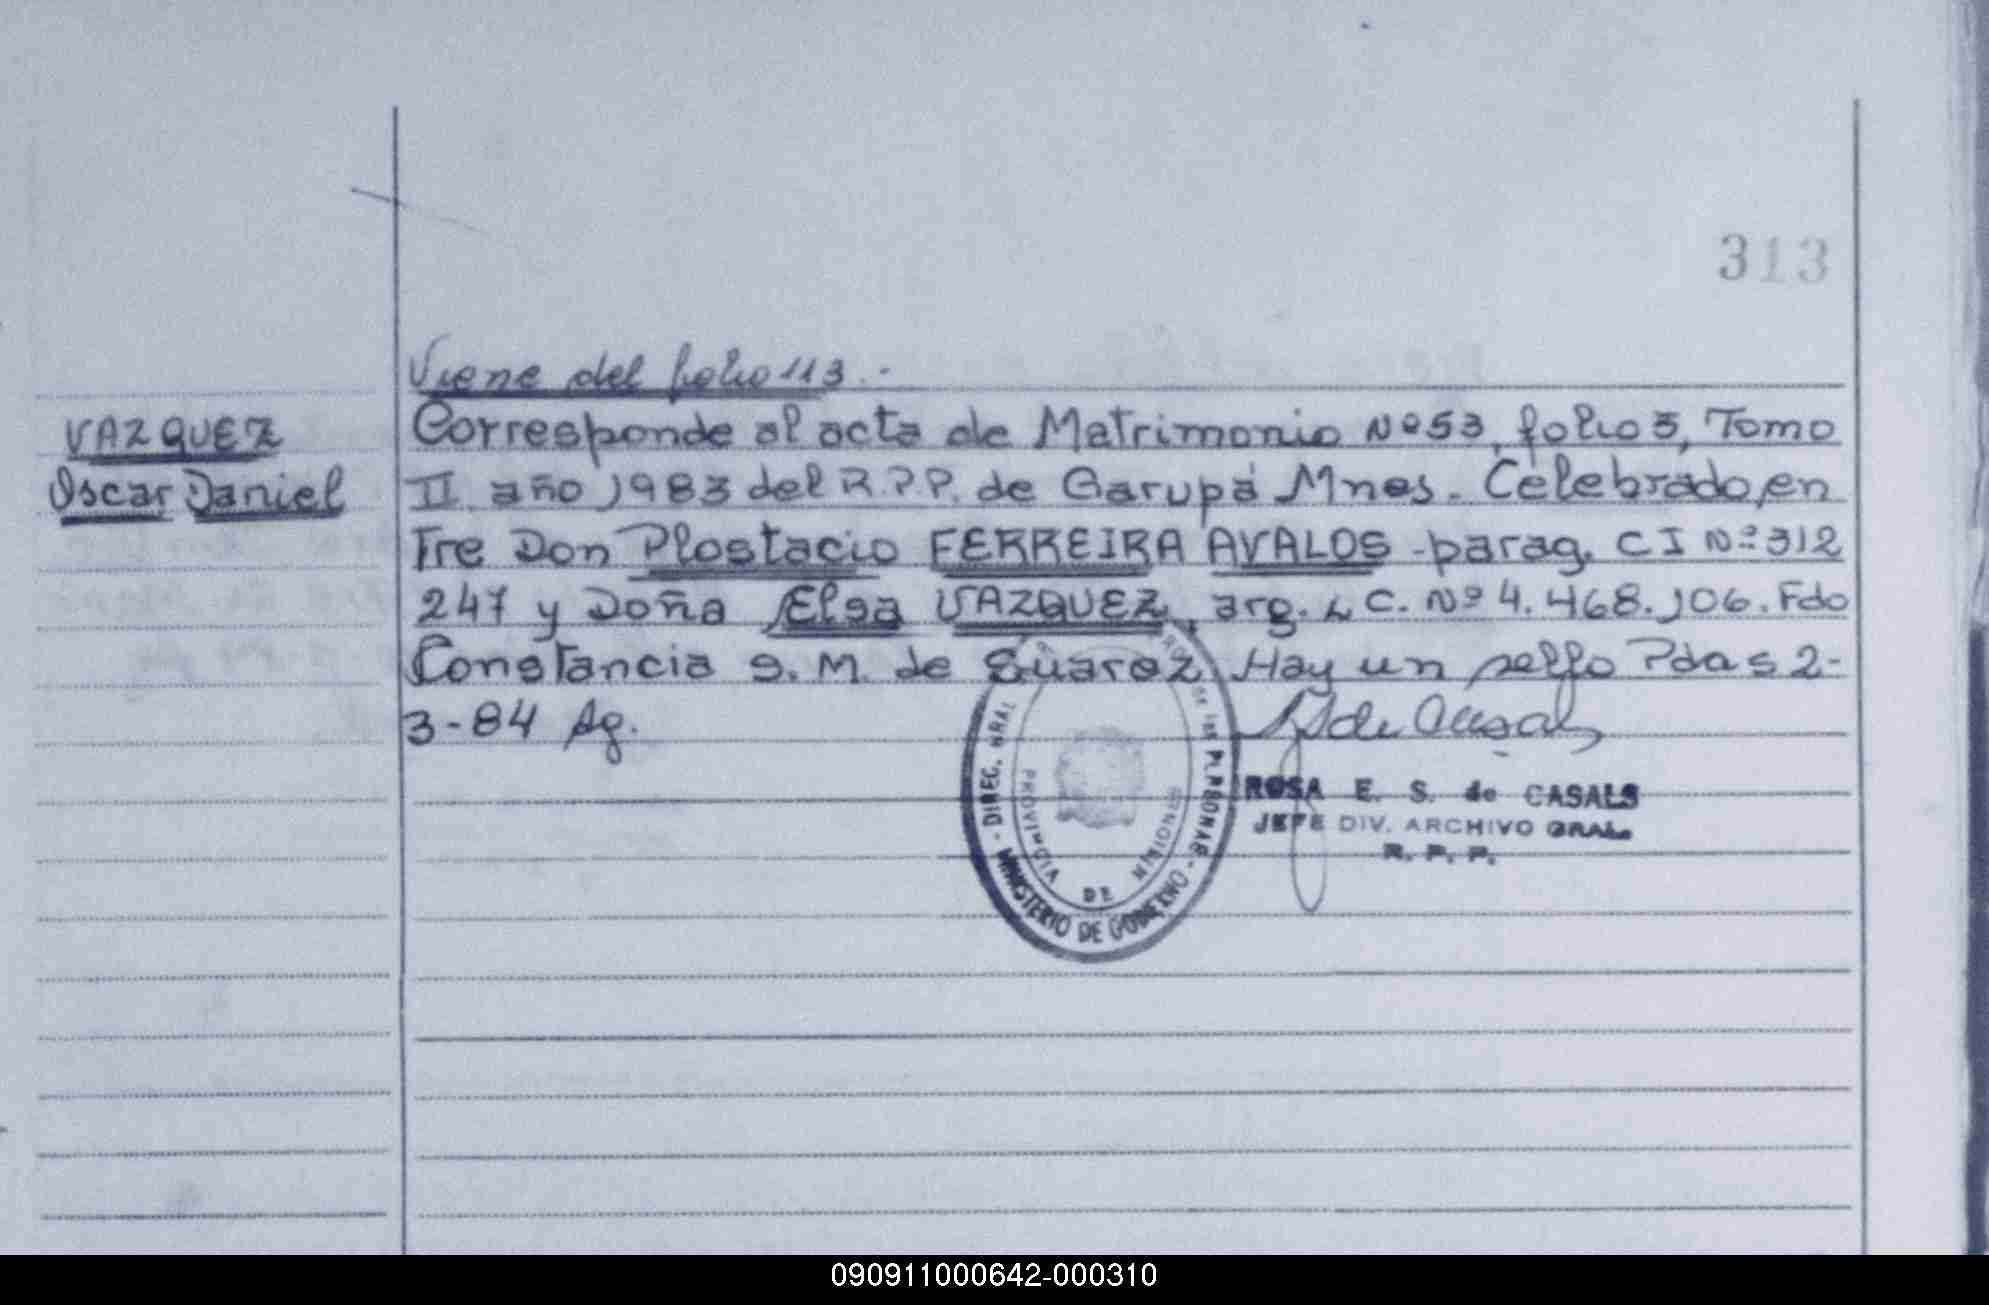 313
Viene del folio 113.-
VAZQUEZ
Oscar Daniel
Corresponde al acta de Matrimonio Nº 53, folio 3, Tomo
II año 1983 del R.P.P. de Garupá Mnes. Celebrado, en
Tre Don Plostacio FERREIRA AVALOS - parag. C I Nº 312
247 y Doña Elsa VAZQUEZ, arg. L C. Nº 4.468.106. Fdo
Constancia S. M. de Suarez Hay un sello Pdas 2-
3-84 Ag.
DIREC. GRAL
de las PERSONAS
MINISTERIO DE GOBIERNO
PROVINCIA DE MISIONES
ROSA E. S. de CASALS
JEFE DIV. ARCHIVO GRAL.
R. P. P.
090911000642-000310